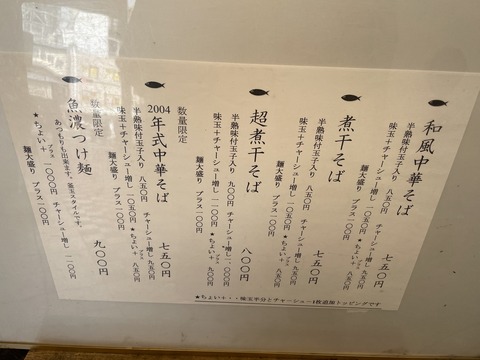 和風中華そば 七五〇円
半熟味付玉子入り 八五〇円 チャーシュー増し 九五〇円
味玉+チャーシュー増し 一〇五〇円 ★ちょい+ プラス 八五〇円
麺大盛り プラス一〇〇円
煮干そば 七五〇円
半熟味付玉子入り 八五〇円 チャーシュー増し 九五〇円
味玉+チャーシュー増し 一〇五〇円 ★ちょい+ プラス 八五〇円
麺大盛り プラス一〇〇円
超煮干そば 八〇〇円
半熟味付玉子入り 九〇〇円 チャーシュー増し 一、〇〇〇円
味玉+チャーシュー増し 一一〇〇円 ★ちょい+ プラス 九〇〇円
麺大盛り プラス一〇〇円
数量限定
2004年式中華そば 七五〇円
半熟味付玉子入り 八五〇円 チャーシュー増し 九五〇円
味玉+チャーシュー増し 一〇五〇円 ★ちょい+ プラス 八五〇円
麺大盛り プラス一〇〇円
数量限定
魚濃つけ麺 九〇〇円
あつもりも出来ます。釜玉スタイルです。
★ちょい+ プラス 一〇〇〇円 チャーシュー増し 一一〇〇円
麺大盛り プラス一〇〇円
★ちょい+・・味玉半分とチャーシュー1枚追加トッピングです